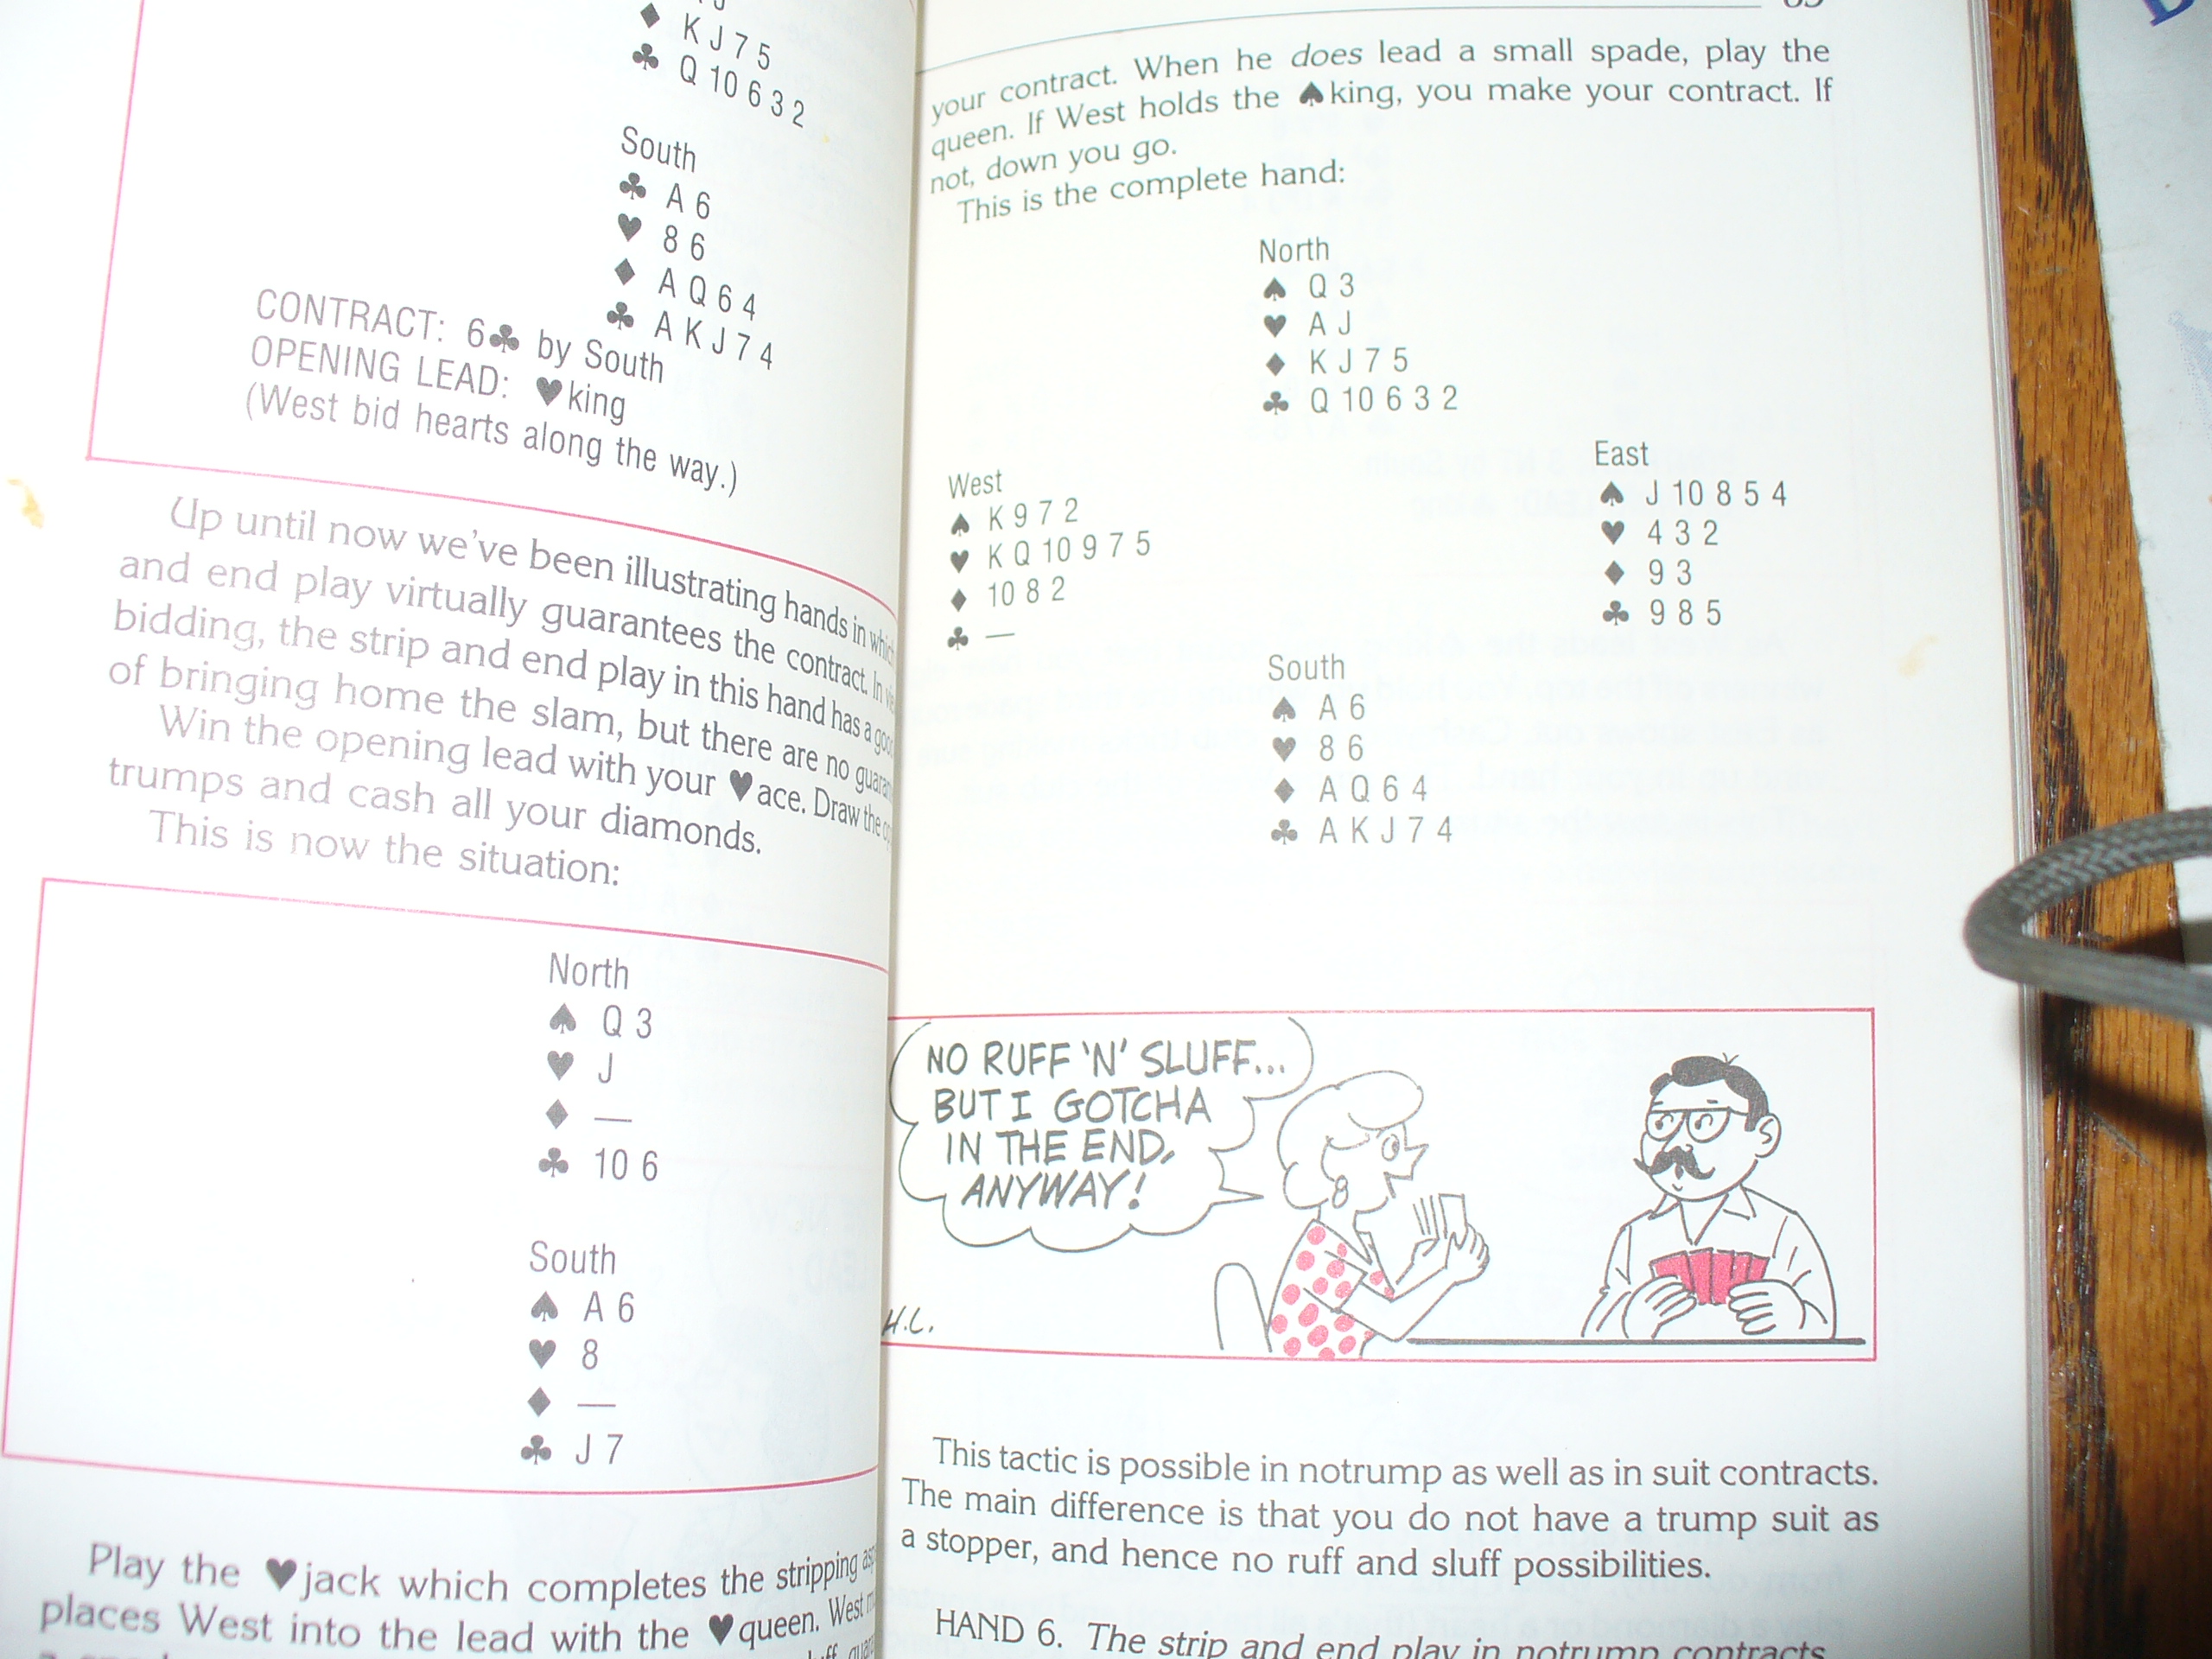 ♦ K J 7 5
♣ Q 10 6 3 2
South
♣ A 6
♥ 8 6
♦ A Q 6 4
♣ A K J 7 4
CONTRACT: 6♣ by South
OPENING LEAD: ♥king
(West bid hearts along the way.)
Up until now we've been illustrating hands in which
and end play virtually guarantees the contract. In
bidding, the strip and end play in this hand has a
of bringing home the slam, but there are no
Win the opening lead with your ♥ace. Draw the
trumps and cash all your diamonds.
This is now the situation:
North
♠ Q 3
♥ J
♦ —
♣ 10 6
South
♠ A 6
♥ 8
♦ —
♣ J 7
Play the ♥jack which completes the stripping
places West into the lead with the ♥queen. West
your contract. When he does lead a small spade, play the
queen. If West holds the ♠king, you make your contract. If
not, down you go.
This is the complete hand:
North
♠ Q 3
♥ A J
♦ K J 7 5
♣ Q 10 6 3 2
West
♠ K 9 7 2
♥ K Q 10 9 7 5
♦ 10 8 2
♣ —
East
♠ J 10 8 5 4
♥ 4 3 2
♦ 9 3
♣ 9 8 5
South
♠ A 6
♥ 8 6
♦ A Q 6 4
♣ A K J 7 4
NO RUFF 'N' SLUFF...
BUT I GOTCHA
IN THE END,
ANYWAY!
H.L.
This tactic is possible in notrump as well as in suit contracts.
The main difference is that you do not have a trump suit as
a stopper, and hence no ruff and sluff possibilities.
HAND 6. The strip and end play in notrump contracts